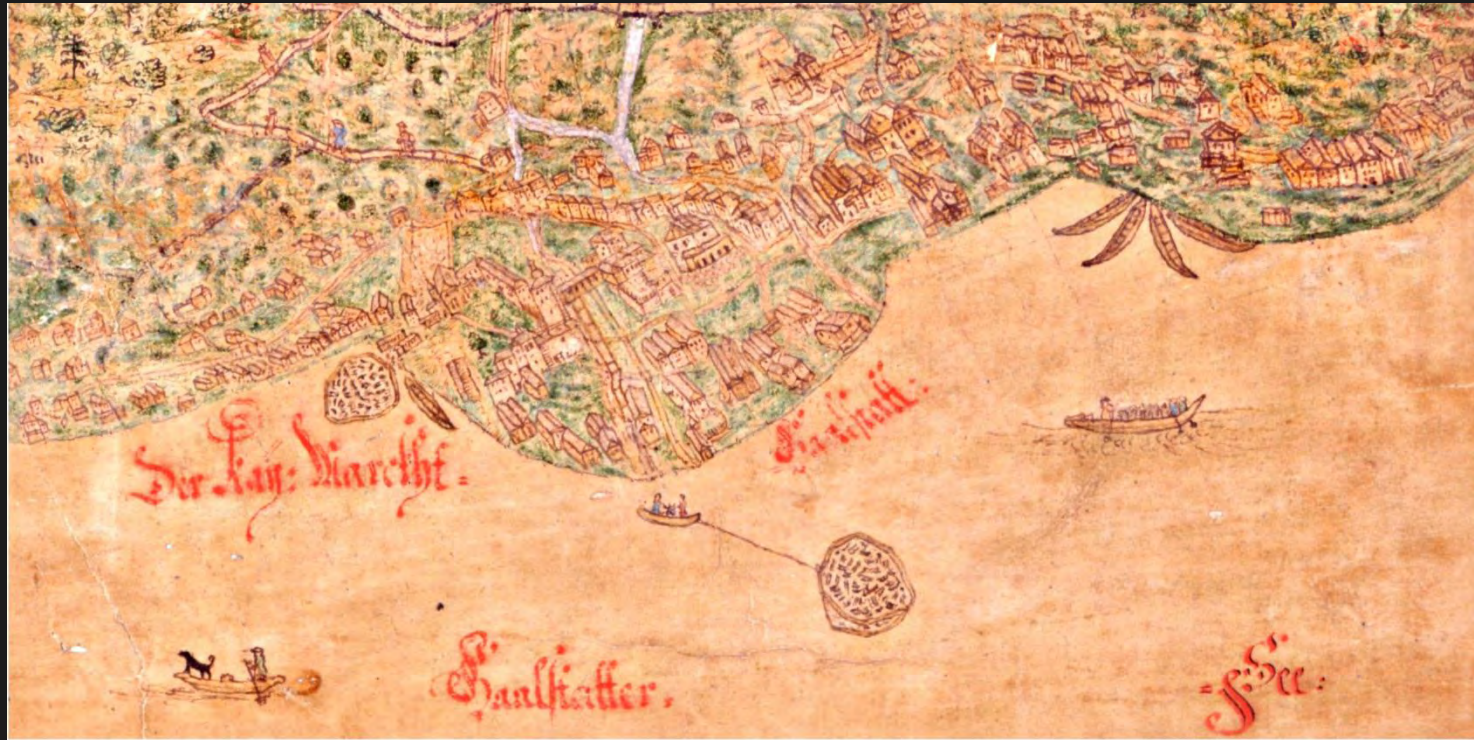 Der Kay: Marckht=
Haalstatt:
Haalstatter.
=See: